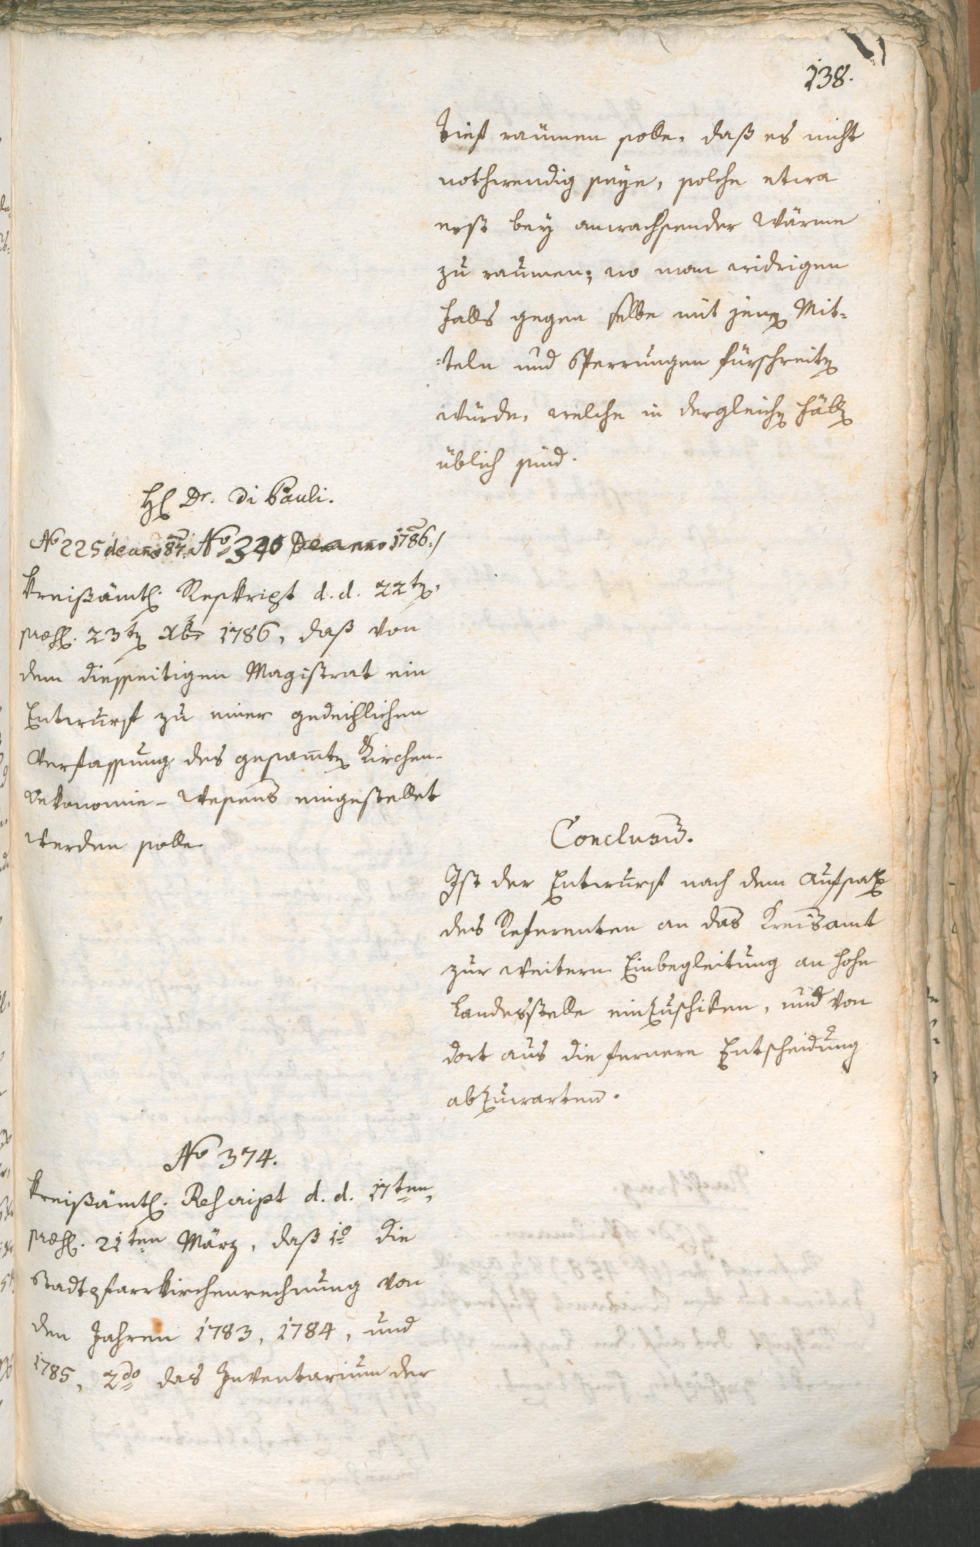 138.
Tieſt raumen ſolle, daß es nicht
nothwendig ſeÿe, ſolche etwa
erſt beÿ anwachſender Wärme
zu raumen; wo man widrigen
Falls gegen ſelbe mit jenen Mit=
=teln und Sperrungen fürſchreiten
würde, welche in dergleichen Fällen
üblich ſind.
H. Dr. Di Pauli.
No 225 de anno 87. No 340 De anno 1786./
Kreißämtl. Reſkript d. d. 22ten,
præſ. 23ten Xber 1786, daß von
dem dießſeitigen Magiſtrat ein
Entwurf zu einer gedeihlichen
Verfaſſung des geſam̄ten Kirchen-
Oekonomie-Weſens eingeſtellet
werden ſolle.
Concluſum.
Iſt der Entwurf nach dem Aufſatz
des Referenten an das Kreisamt
zur weitern Einbegleitung an hohe
Landesſtelle einzuſchiken, und von
dort aus die fernere Entſcheidung
abzuwarten.
No 374.
Kreißämtl. Reſcript d. d. 17ten,
præſ. 21ten März, daß 1o die
Stadtpfarrkirchenrechnung von
den Jahren 1783, 1784, und
1785, 2do das Inventarium der